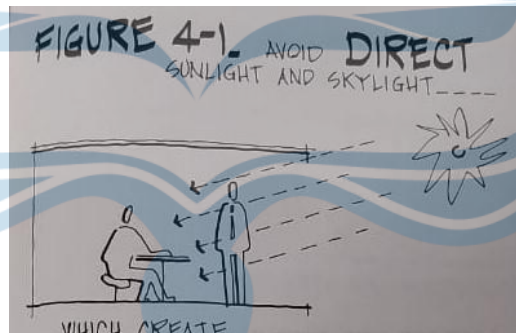 FIGURE 4-1_ AVOID DIRECT
SUNLIGHT AND SKYLIGHT____
WHICH CREATE